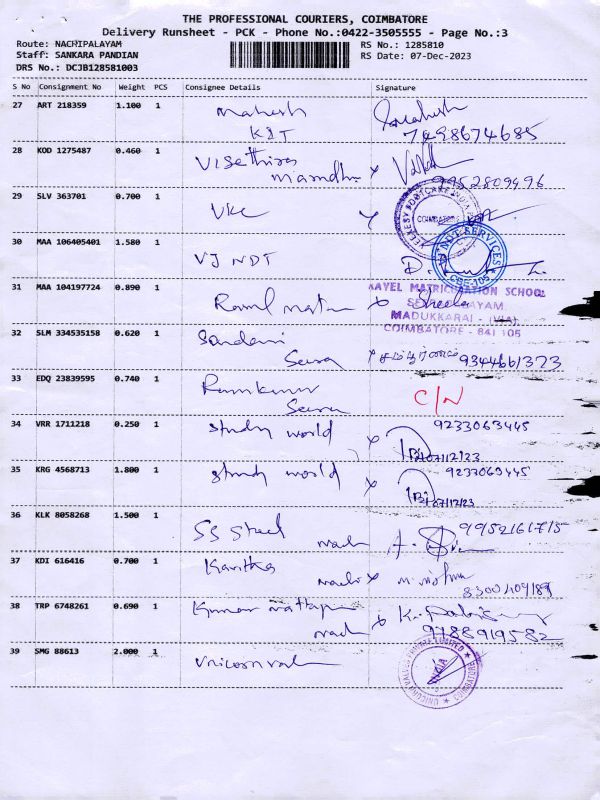 THE PROFESSIONAL COURIERS, COIMBATORE
Delivery Runsheet - PCK - Phone No.:0422-3505555 - Page No.:3
Route: NACHIPALAYAM
Staff: SANKARA PANDIAN
DRS No.: DCJB128581003
RS No.: 1285810
RS Date: 07-Dec-2023
S No Consignment No Weight PCS Consignee Details Signature
27 ART 218359 1.100 1 Mahesh Mahesh
KIT 7498674685
28 KOD 1275487 0.460 1
9952809496
29 SLV 363701 0.700 1 VKC
COIMBATORE
30 MAA 106405401 1.580 1 VJ NDT
VJ NDT SERVICES
CBE-105
31 MAA 104197724 0.890 1 Sheela
MATRICULATION SCHOOL
MADUKKARAI - (VIA)
COIMBATORE - 641 105
32 SLM 334535158 0.620 1
9344661373
33 EDQ 23839595 0.740 1 Ramkumar C/N
34 VRR 1711218 0.250 1 study world 9233063445
07/12/23
35 KRG 4568713 1.800 1 study world 9233063445
07/12/23
36 KLK 8058268 1.500 1 SS Steel 9952161715
37 KDI 616416 0.700 1 Kavitha
38 TRP 6748261 0.690 1 Kumar
9788919582
39 SMG 88613 2.000 1